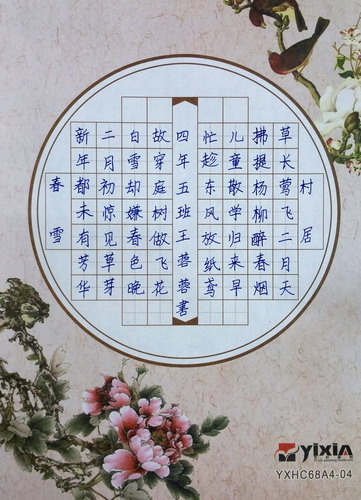 村居
草长莺飞二月天
拂提杨柳醉春烟
儿童散学归来早
忙趁东风放纸鸢
春雪
新年都未有芳华
二月初惊见草芽
白雪却嫌春色晚
故穿庭树做飞花
四年五班王蓉蓉書
yixin
YXHC68A4-04